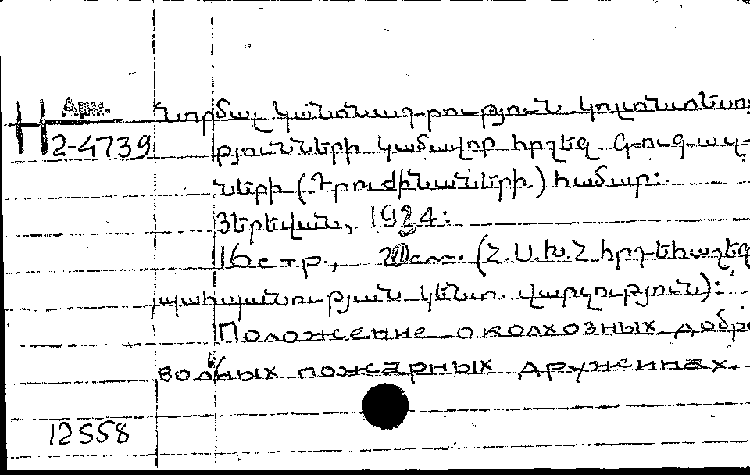 Арм.
Նորմալ կանոնադրություն կոլտնտեսու-
H2-4739
թյունների կամավոր հրշեջ Գուգակ-
ների (Դրուժինաների) համար:
Յերեվան, 1934:
16стр., 20см. (Հ.Ս.Խ.Հ հրդեհաշեջ
պահպանության կենտ. վարչություն):
Положение о колхозных добро
вольных пожарных дружинах.
12558